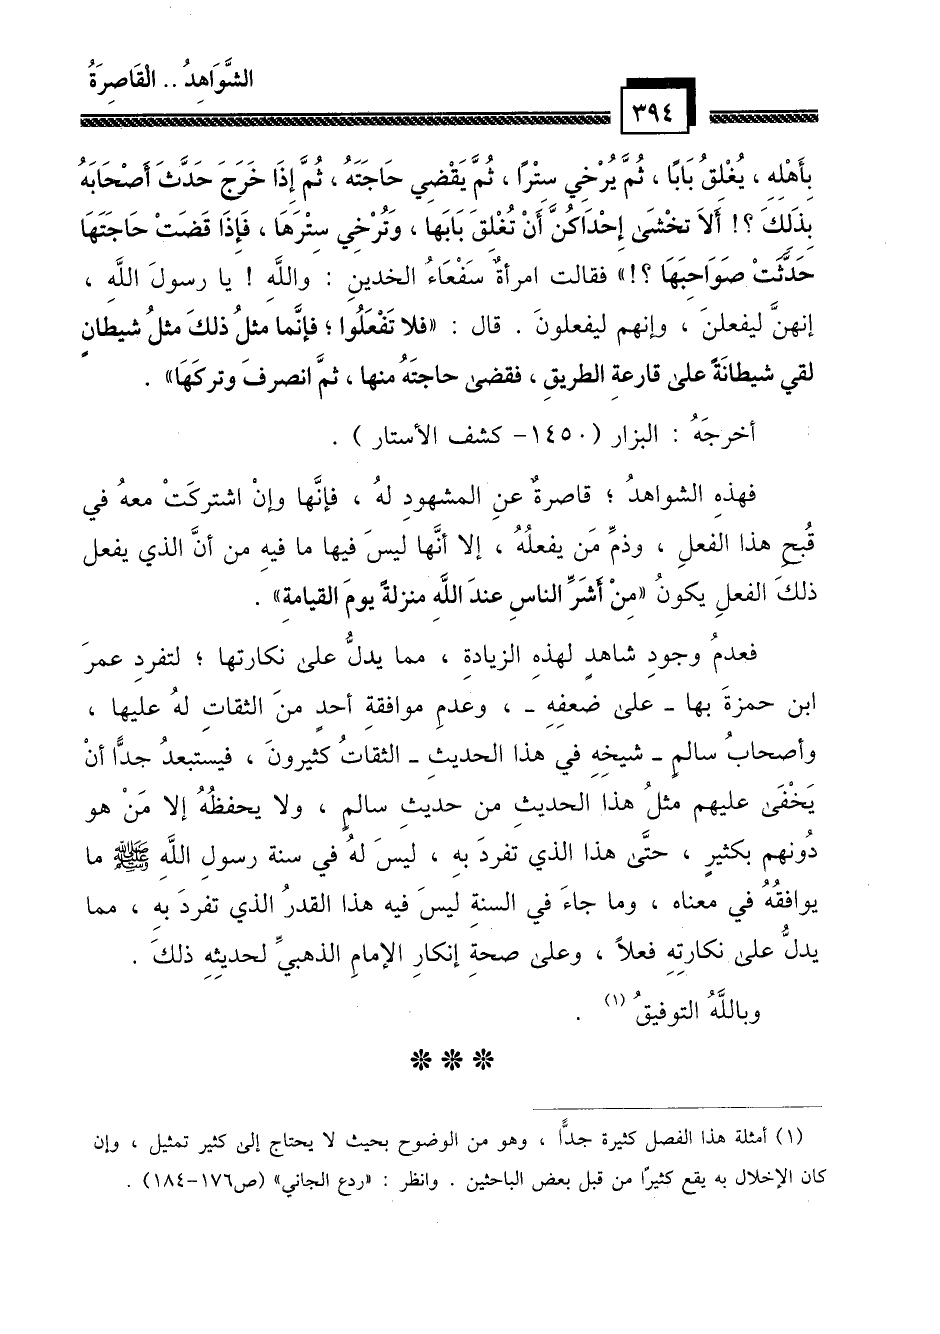 الشَّوَاهِدُ .. الْقَاصِرَةُ
٣٩٤
بِأَهْلِهِ ، يُغْلِقُ بَابًا ، ثُمَّ يُرْخِي سِتْرًا ، ثُمَّ يَقْضِي حَاجَتَهُ ، ثُمَّ إِذَا خَرَجَ حَدَّثَ أَصْحَابَهُ
بِذَلِكَ ؟! أَلَا تَخْشَىٰ إِحْدَاكُنَّ أَنْ تُغْلِقَ بَابَها ، وَتُرْخِي سِتْرَهَا ، فَإِذَا قَضَتْ حَاجَتَهَا
حَدَّثَتْ صَوَاحِبَهَا ؟!» فقالت امرأةٌ سَفْعَاءُ الخدينِ : واللَّهِ ! يا رسولَ اللَّهِ ،
إنهنَّ ليفعلنَ ، وإنهم ليفعلونَ . قال : «فلا تَفْعَلُوا ؛ فإنَّما مثلُ ذلكَ مثلُ شيطانٍ
لقي شيطانَةً علىٰ قارعةِ الطريقِ ، فقضىٰ حاجتَهُ منها ، ثمَّ انصرفَ وتركَهَا» .
أخرجَهُ : البزار (١٤٥٠- كشف الأستار ) .
فهذِهِ الشواهدُ ؛ قاصرةٌ عنِ المشهودِ لهُ ، فإنَّها وإنْ اشتركَتْ معهُ في
قُبحِ هذا الفعلِ ، وذمِّ مَن يفعلُهُ ، إلا أنَّها ليسَ فيها ما فيهِ من أنَّ الذي يفعل
ذلكَ الفعلَ يكونُ «مِنْ أَشَرِّ الناسِ عندَ اللَّهِ منزلةً يومَ القيامةِ» .
فعدمُ وجودِ شاهدٍ لهذِهِ الزيادةِ ، مما يدلُّ علىٰ نكارتِها ؛ لتفردِ عمرَ
ابنِ حمزةَ بها ـ علىٰ ضعفِهِ ـ ، وعدمِ موافقةِ أحدٍ منَ الثقاتِ لهُ عليها ،
وأصحابُ سالمٍ ـ شيخِهِ في هذا الحديثِ ـ الثقاتُ كثيرونَ ، فيستبعدُ جدًّا أنْ
يَخْفَىٰ عليهم مثلُ هذا الحديثِ من حديثِ سالمٍ ، ولا يحفظُهُ إلا مَنْ هو
دُونهم بكثيرٍ ، حتَّىٰ هذا الذي تفردَ بهِ ، ليسَ لهُ في سنة رسولِ اللَّهِ ﷺ ما
يوافقُهُ في معناه ، وما جاءَ في السنةِ ليسَ فيه هذا القدرُ الذي تفردَ بِهِ ، مما
يدلُّ علىٰ نكارتِهِ فعلاً ، وعلىٰ صحةِ إنكارِ الإمامِ الذهبيِّ لحديثِهِ ذلكَ .
وباللَّهُ التوفيقُ (١) .
(١) أمثلة هذا الفصل كثيرة جدًّا ، وهو من الوضوح بحيث لا يحتاج إلىٰ كثير تمثيل ، وإن
كان الإخلال به يقع كثيرًا من قبل بعض الباحثين . وانظر : «ردع الجاني» (ص١٧٦-١٨٤) .